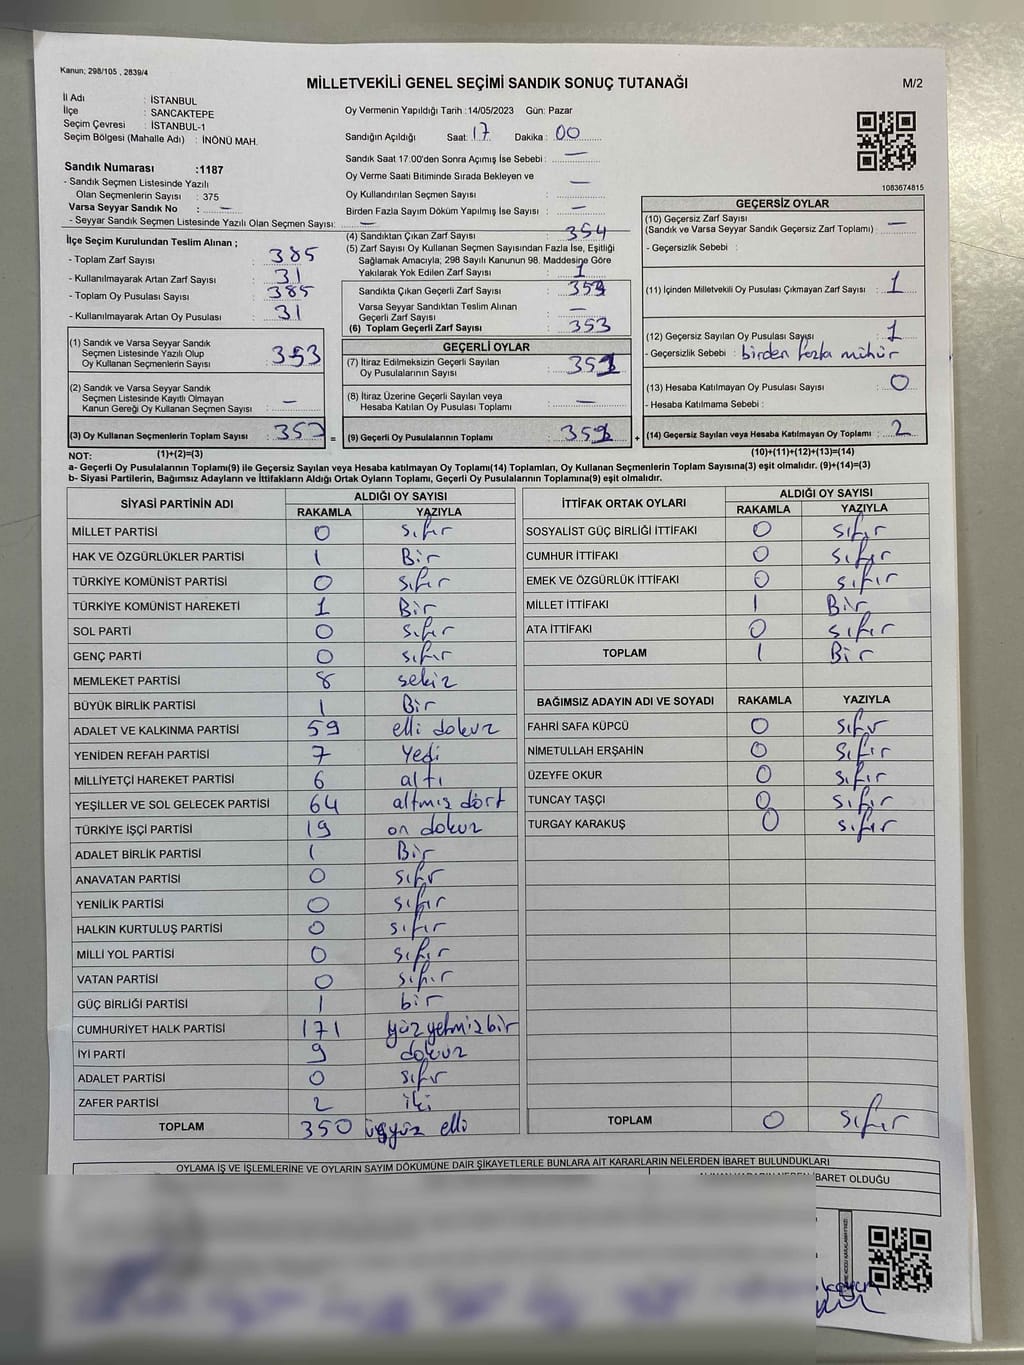 Kanun; 298/105 , 2839/4
MİLLETVEKİLİ GENEL SEÇİMİ SANDIK SONUÇ TUTANAĞI
M/2
İl Adı : İSTANBUL
İlçe : SANCAKTEPE
Seçim Çevresi : İSTANBUL-1
Seçim Bölgesi (Mahalle Adı) : İNÖNÜ MAH.
Sandık Numarası :1187
- Sandık Seçmen Listesinde Yazılı
Olan Seçmenlerin Sayısı : 375
Varsa Seyyar Sandık No : —
- Seyyar Sandık Seçmen Listesinde Yazılı Olan Seçmen Sayısı: —
Oy Vermenin Yapıldığı Tarih : 14/05/2023 Gün: Pazar
Sandığın Açıldığı Saat: 17 Dakika : 00
Sandık Saat 17.00'den Sonra Açımış İse Sebebi : —
Oy Verme Saati Bitiminde Sırada Bekleyen ve
Oy Kullandırılan Seçmen Sayısı : —
Birden Fazla Sayım Döküm Yapılmış İse Sayısı : —
1083674815
İlçe Seçim Kurulundan Teslim Alınan ;
- Toplam Zarf Sayısı : 385
- Kullanılmayarak Artan Zarf Sayısı : 31
- Toplam Oy Pusulası Sayısı : 385
- Kullanılmayarak Artan Oy Pusulası : 31
(1) Sandık ve Varsa Seyyar Sandık
Seçmen Listesinde Yazılı Olup
Oy Kullanan Seçmenlerin Sayısı : 353
(2) Sandık ve Varsa Seyyar Sandık
Seçmen Listesinde Kayıtlı Olmayan
Kanun Gereği Oy Kullanan Seçmen Sayısı : —
(3) Oy Kullanan Seçmenlerin Toplam Sayısı : 353 =
(4) Sandıktan Çıkan Zarf Sayısı : 354
(5) Zarf Sayısı Oy Kullanan Seçmen Sayısından Fazla İse, Eşitliği
Sağlamak Amacıyla; 298 Sayılı Kanunun 98. Maddesine Göre
Yakılarak Yok Edilen Zarf Sayısı : 1
Sandıkta Çıkan Geçerli Zarf Sayısı :
Varsa Seyyar Sandıktan Teslim Alınan
Geçerli Zarf Sayısı : —
(6) Toplam Geçerli Zarf Sayısı : 353
GEÇERLİ OYLAR
(7) İtiraz Edilmeksizin Geçerli Sayılan
Oy Pusulalarının Sayısı : 351
(8) İtiraz Üzerine Geçerli Sayılan veya
Hesaba Katılan Oy Pusulası Toplamı : —
(9) Geçerli Oy Pusulalarının Toplamı : 351 +
GEÇERSİZ OYLAR
(10) Geçersiz Zarf Sayısı
(Sandık ve Varsa Seyyar Sandık Geçersiz Zarf Toplamı) : —
- Geçersizlik Sebebi :
(11) İçinden Milletvekili Oy Pusulası Çıkmayan Zarf Sayısı : 1
(12) Geçersiz Sayılan Oy Pusulası Sayısı : 1
- Geçersizlik Sebebi : birden fazla mühür
(13) Hesaba Katılmayan Oy Pusulası Sayısı : 0
- Hesaba Katılmama Sebebi :
(14) Geçersiz Sayılan veya Hesaba Katılmayan Oy Toplamı : 2
NOT: (1)+(2)=(3) (10)+(11)+(12)+(13)=(14)
a- Geçerli Oy Pusulalarının Toplamı(9) ile Geçersiz Sayılan veya Hesaba katılmayan Oy Toplamı(14) Toplamları, Oy Kullanan Seçmenlerin Toplam Sayısına(3) eşit olmalıdır. (9)+(14)=(3)
b- Siyasi Partilerin, Bağımsız Adayların ve İttifakların Aldığı Ortak Oyların Toplamı, Geçerli Oy Pusulalarının Toplamına(9) eşit olmalıdır.
SİYASİ PARTİNİN ADI ALDIĞI OY SAYISI
RAKAMLA YAZIYLA
MİLLET PARTİSİ 0 sıfır
HAK VE ÖZGÜRLÜKLER PARTİSİ 1 Bir
TÜRKİYE KOMÜNİST PARTİSİ 0 sıfır
TÜRKİYE KOMÜNİST HAREKETİ 1 Bir
SOL PARTİ 0 sıfır
GENÇ PARTİ 0 sıfır
MEMLEKET PARTİSİ 8 sekiz
BÜYÜK BİRLİK PARTİSİ 1 Bir
ADALET VE KALKINMA PARTİSİ 59 elli dokuz
YENİDEN REFAH PARTİSİ 7 Yedi
MİLLİYETÇİ HAREKET PARTİSİ 6 altı
YEŞİLLER VE SOL GELECEK PARTİSİ 64 altmış dört
TÜRKİYE İŞÇİ PARTİSİ 19 on dokuz
ADALET BİRLİK PARTİSİ 1 Bir
ANAVATAN PARTİSİ 0 sıfır
YENİLİK PARTİSİ 0 sıfır
HALKIN KURTULUŞ PARTİSİ 0 sıfır
MİLLİ YOL PARTİSİ 0 sıfır
VATAN PARTİSİ 0 sıfır
GÜÇ BİRLİĞİ PARTİSİ 1 bir
CUMHURİYET HALK PARTİSİ 171 yüz yetmiş bir
İYİ PARTİ 9 dokuz
ADALET PARTİSİ 0 sıfır
ZAFER PARTİSİ 2 iki
TOPLAM 350 üçyüz elli
İTTİFAK ORTAK OYLARI ALDIĞI OY SAYISI
RAKAMLA YAZIYLA
SOSYALIST GÜÇ BİRLİĞİ İTTİFAKI 0 sıfır
CUMHUR İTTİFAKI 0 sıfır
EMEK VE ÖZGÜRLÜK İTTİFAKI 0 sıfır
MİLLET İTTİFAKI 1 Bir
ATA İTTİFAKI 0 sıfır
TOPLAM 1 Bir
BAĞIMSIZ ADAYIN ADI VE SOYADI RAKAMLA YAZIYLA
FAHRİ SAFA KÜPCÜ 0 sıfır
NİMETULLAH ERŞAHİN 0 sıfır
ÜZEYFE OKUR 0 sıfır
TUNCAY TAŞÇI 0 sıfır
TURGAY KARAKUŞ 0 sıfır
TOPLAM 0 sıfır
OYLAMA İŞ VE İŞLEMLERİNE VE OYLARIN SAYIM DÖKÜMÜNE DAİR ŞİKAYETLERLE BUNLARA AİT KARARLARIN NELERDEN İBARET BULUNDUKLARI
İBARET OLDUĞU